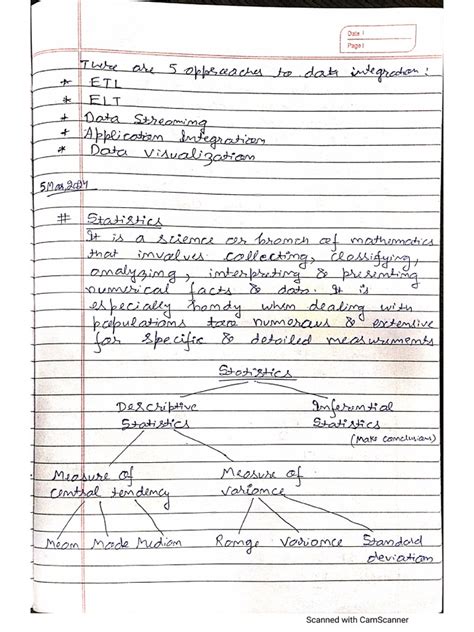 Date |
Page |
There are 5 approaches to data integration:
* ETL
* ELT
* Data Streaming
* Application Integration
* Data Visualization
5 Mar, 2024
# Statistics
It is a science or branch of mathematics
that involves collecting, classifying,
analyzing, interpreting & presenting
numerical facts & data. It is
especially handy when dealing with
populations too numorous & extensive
for specific & detailed measurements
Statistics
Descriptive Inferential
Statistics Statistics
(Make conclusions)
Measure of Measure of
central tendency variance
Mean Mode Median Range Variance Standard
deviation
Scanned with CamScanner